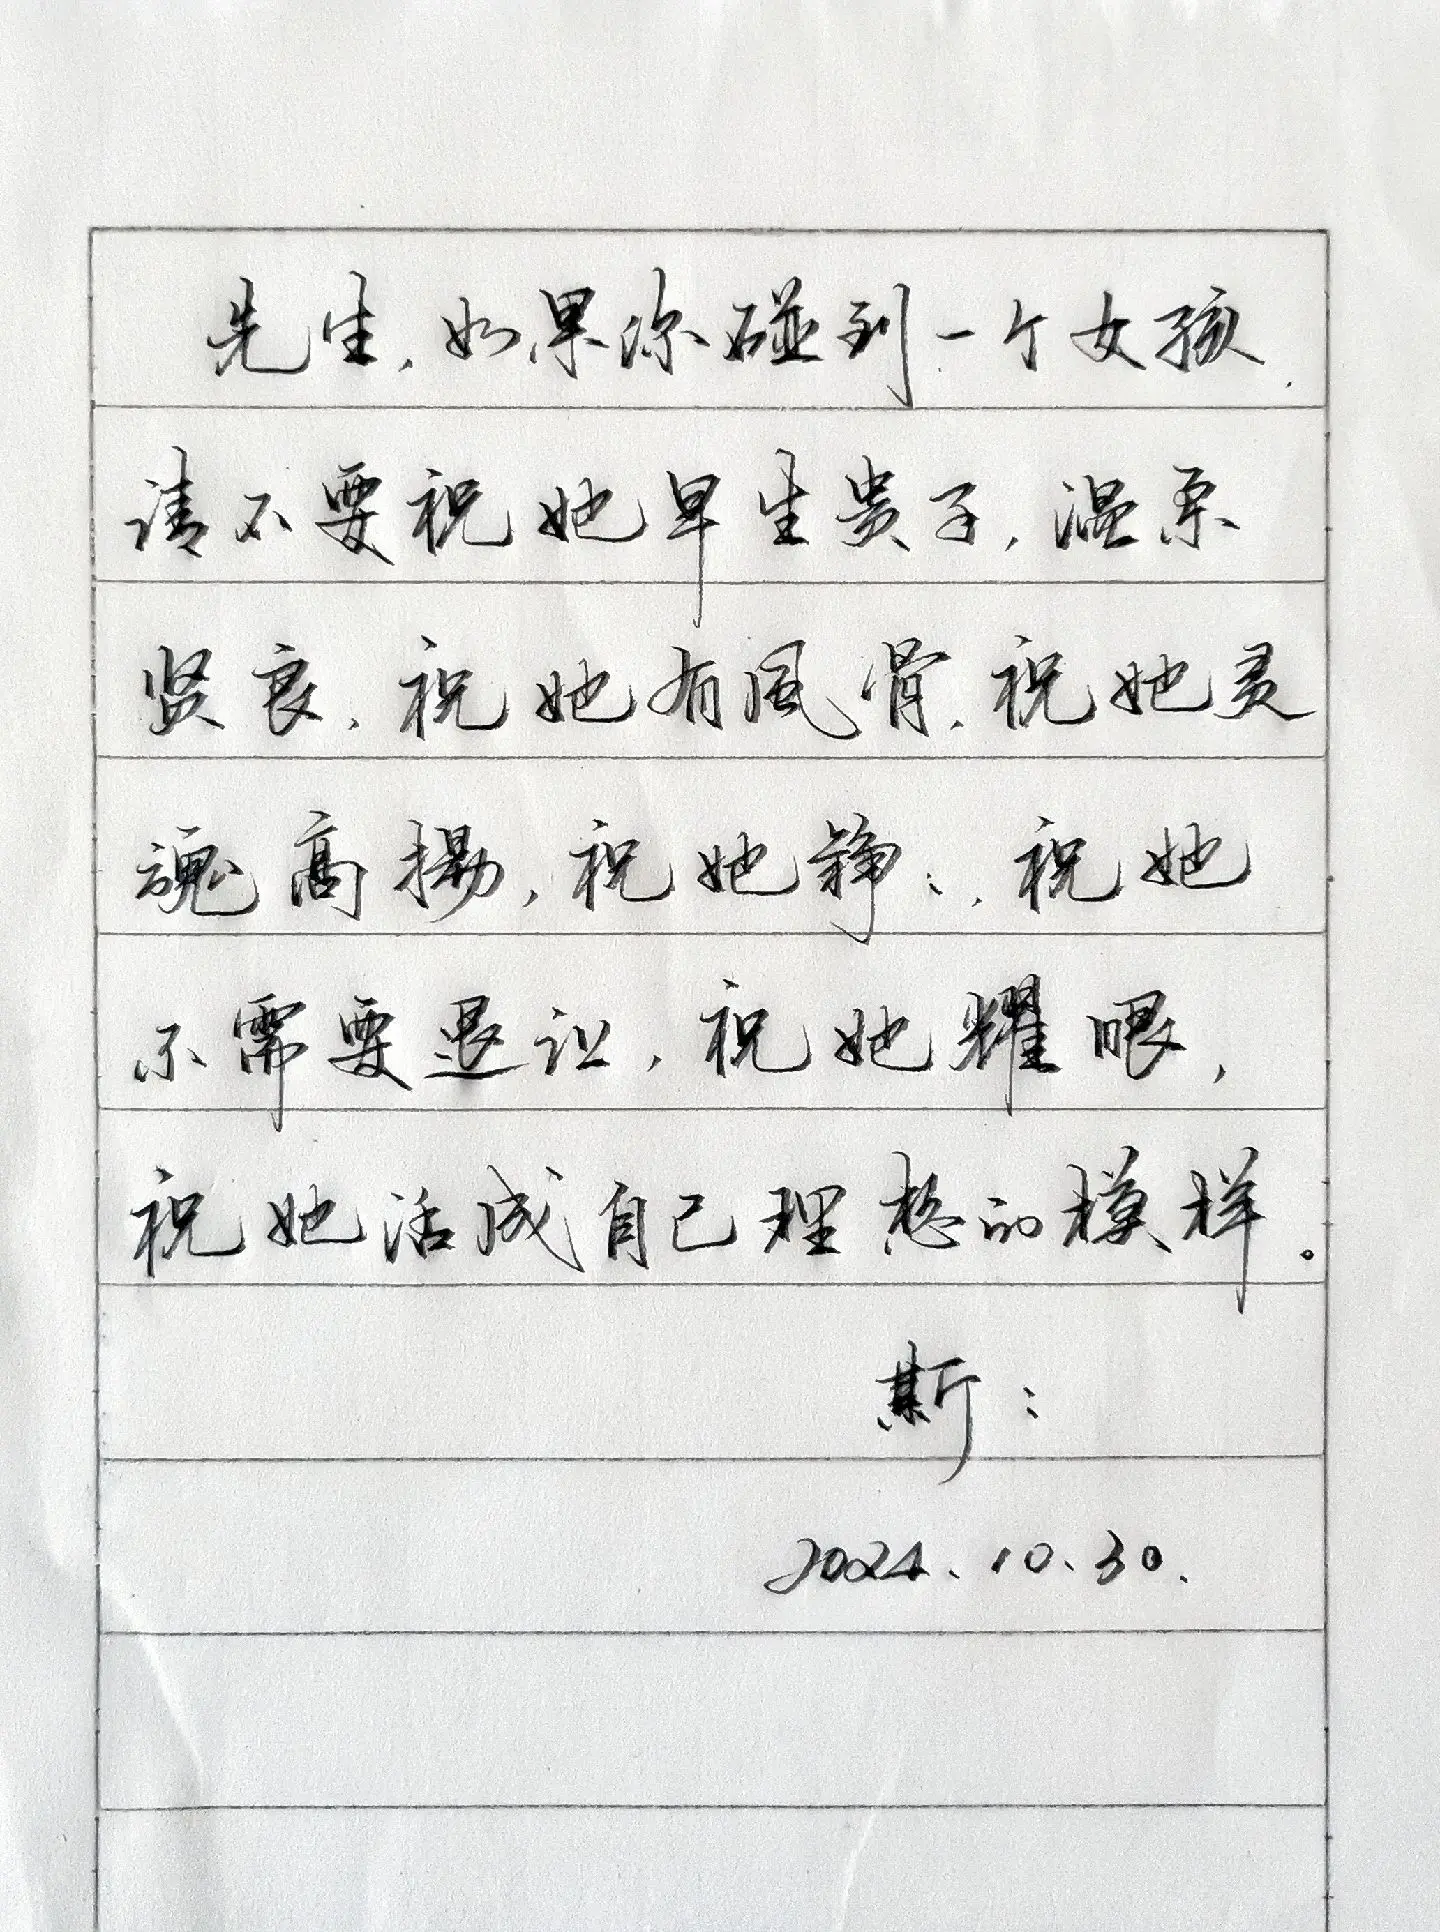 先生,如果你碰到一个女孩,
请不要祝她早生贵子,温柔
贤良,祝她有风骨,祝她灵
魂高扬,祝她铮:,祝她
不需要退让,祝她耀眼,
祝她活成自己理想的模样。
斯:
2024.10.30.